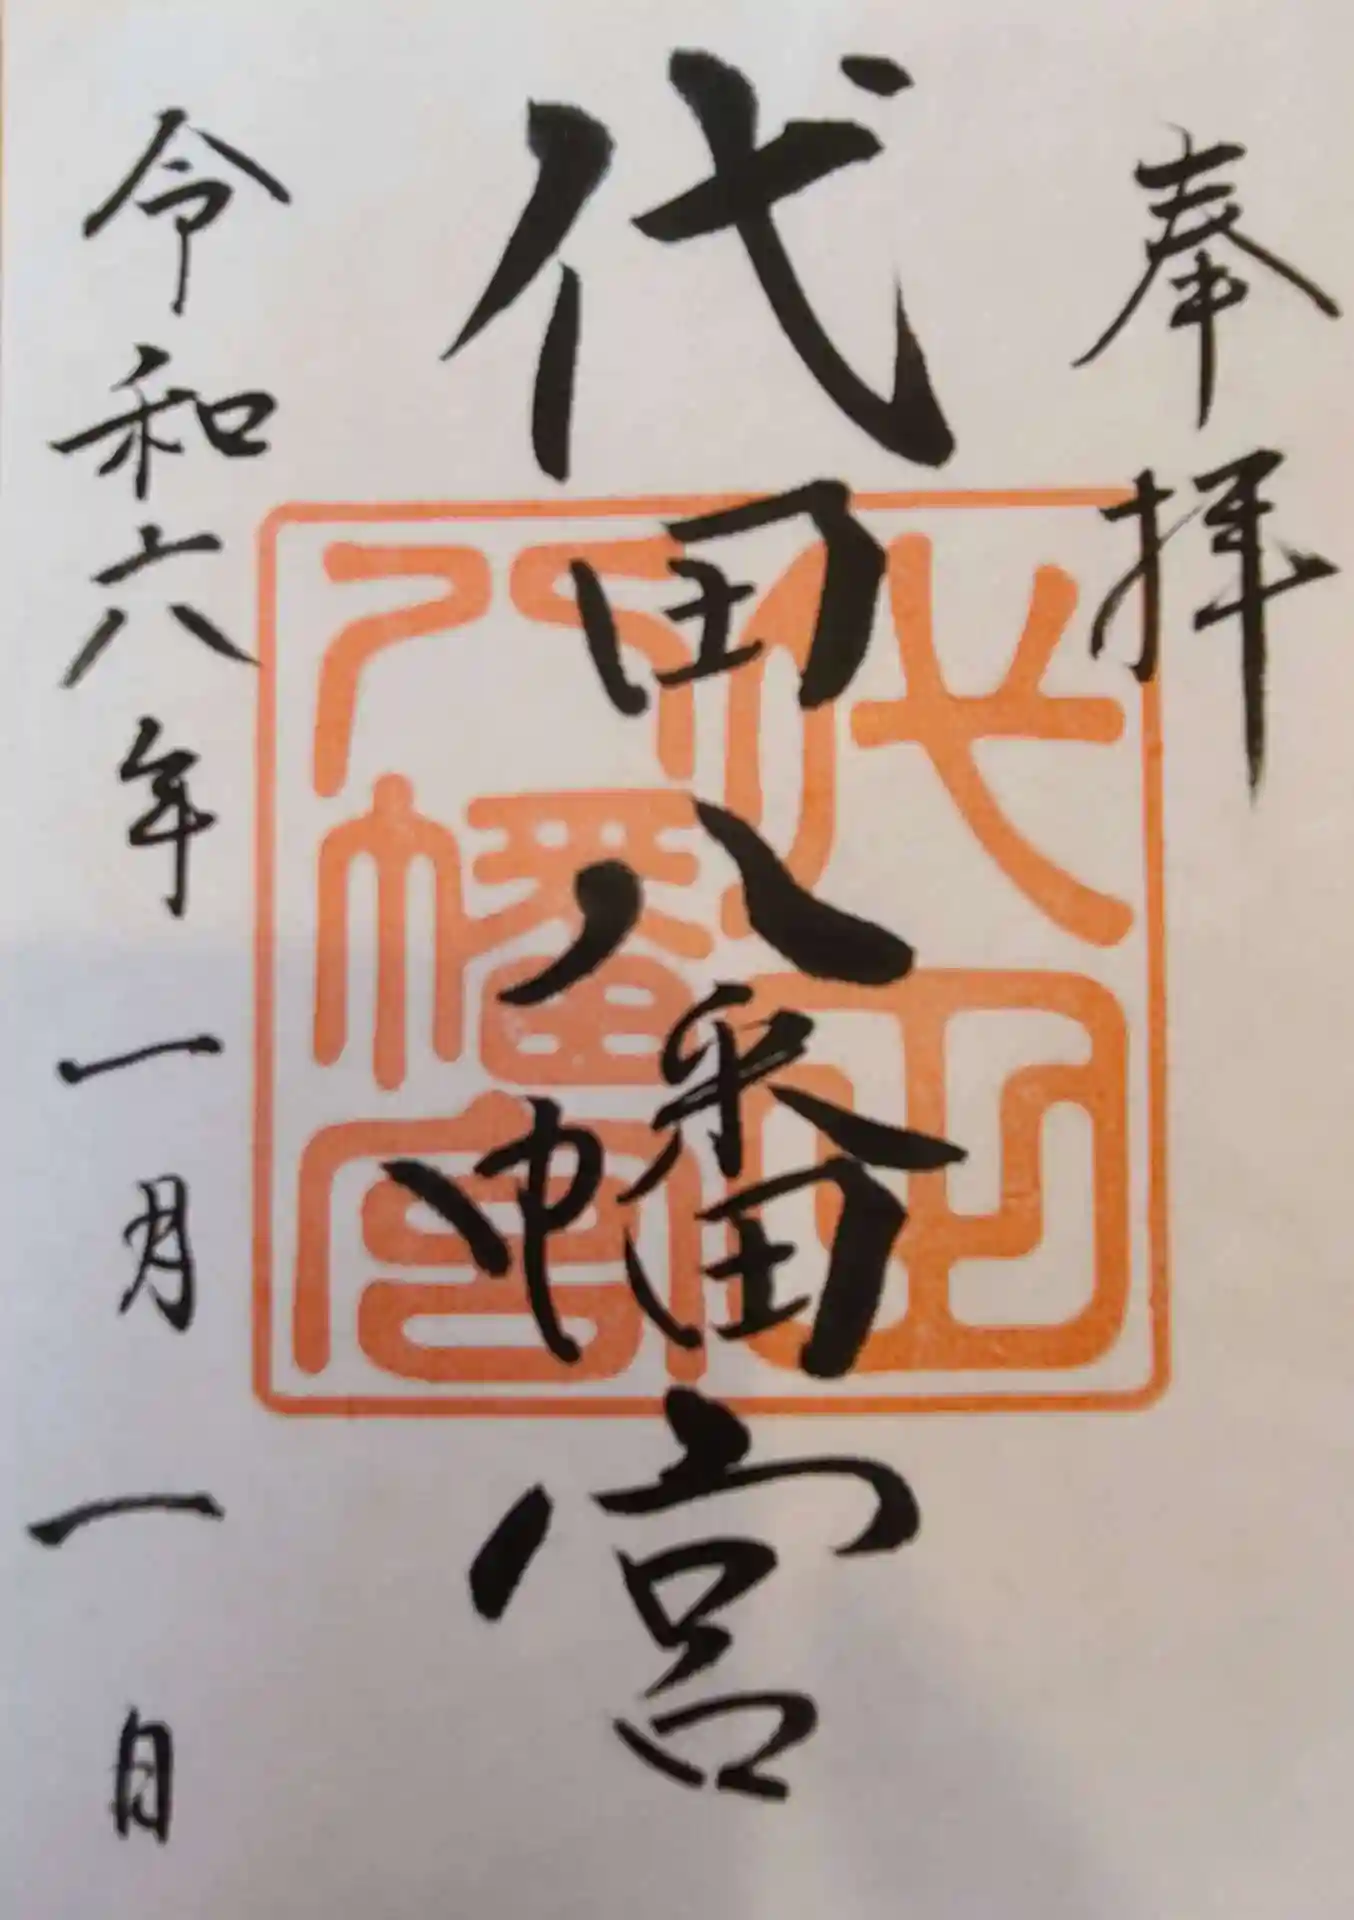 奉拝
代田八幡宮
代田
八幡宮
令和六年一月一日